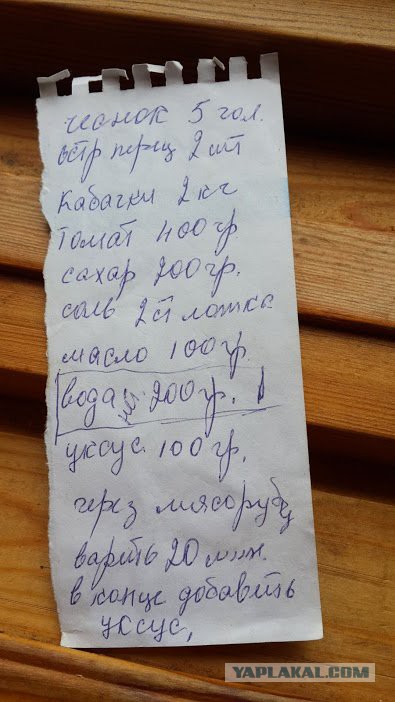 чеснок 5 гол.
остр перец 2 шт
Кабачки 2 кг
Томат 400 гр
сахар 200 гр.
соль 2 ст ложка
масло 100 гр.
вода 200 гр.
уксус 100 гр.
через мясорубку
варить 20 мин.
в конце добавить
уксус.
YAPLAKAL.COM